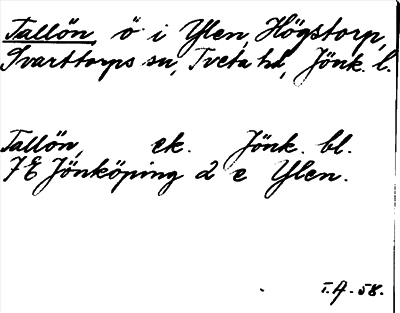 Tallön, ö i Ylen, Högstorp,
Svarttorps sn, Tveta hd, Jönk. l.
Tallön, ek. Jönk. bl.
7E Jönköping 2 e Ylen.
T.A. - 58.